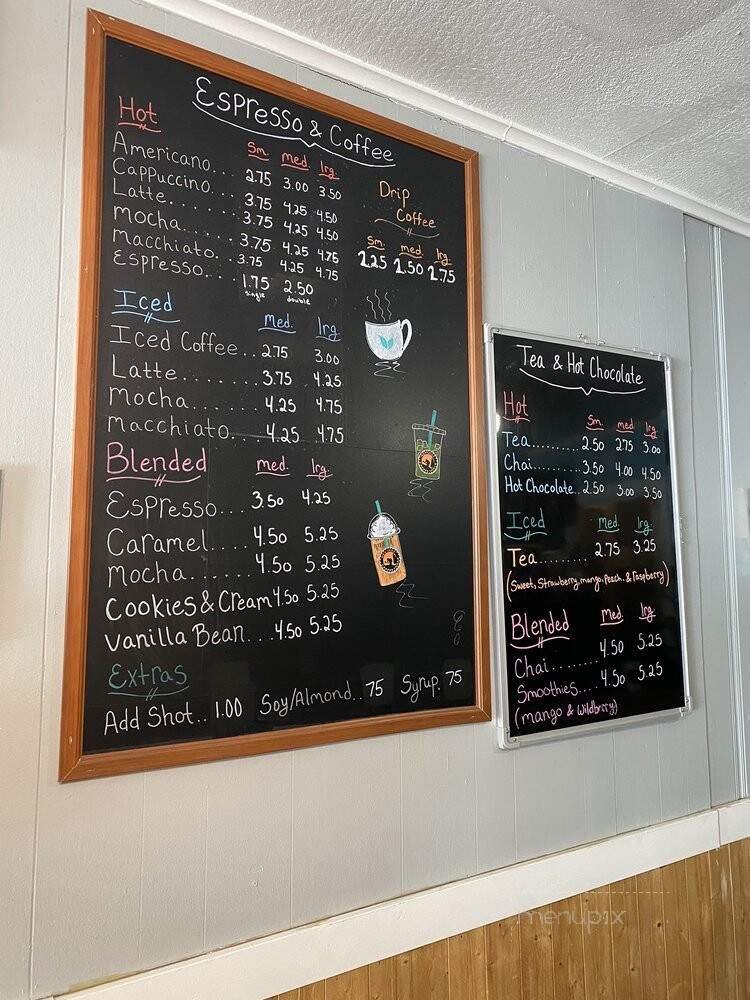 Espresso & Coffee
Hot
Sm. med. lrg.
Americano... 2.75 3.00 3.50
Cappuccino.. 3.75 4.25 4.50
Latte....... 3.75 4.25 4.50
mocha....... 3.75 4.25 4.75
macchiato... 3.75 4.25 4.75
Espresso... 1.75 2.50
single double
Drip
Coffee
Sm. med lrg.
1.25 1.50 1.75
Iced
med. lrg.
Iced Coffee.. 2.75 3.00
Latte....... 3.75 4.25
mocha....... 4.25 4.75
macchiato... 4.25 4.75
Blended
med. lrg.
Espresso.... 3.50 4.25
Caramel..... 4.50 5.25
Mocha....... 4.50 5.25
Cookies & Cream 4.50 5.25
Vanilla Bean... 4.50 5.25
Extras
Add Shot.. 1.00 Soy/Almond.. 75 Syrup. 75
Tea & Hot Chocolate
Hot
Sm. med lrg.
Tea......... 2.50 2.75 3.00
Chai........ 3.50 4.00 4.50
Hot Chocolate.. 2.50 3.00 3.50
Iced
Med. lrg.
Tea........ 2.75 3.25
(Sweet, Strawberry, mango, Peach, & raspberry)
Blended
Med. lrg.
Chai....... 4.50 5.25
Smoothies... 4.50 5.25
(mango & wildberry)
menupix